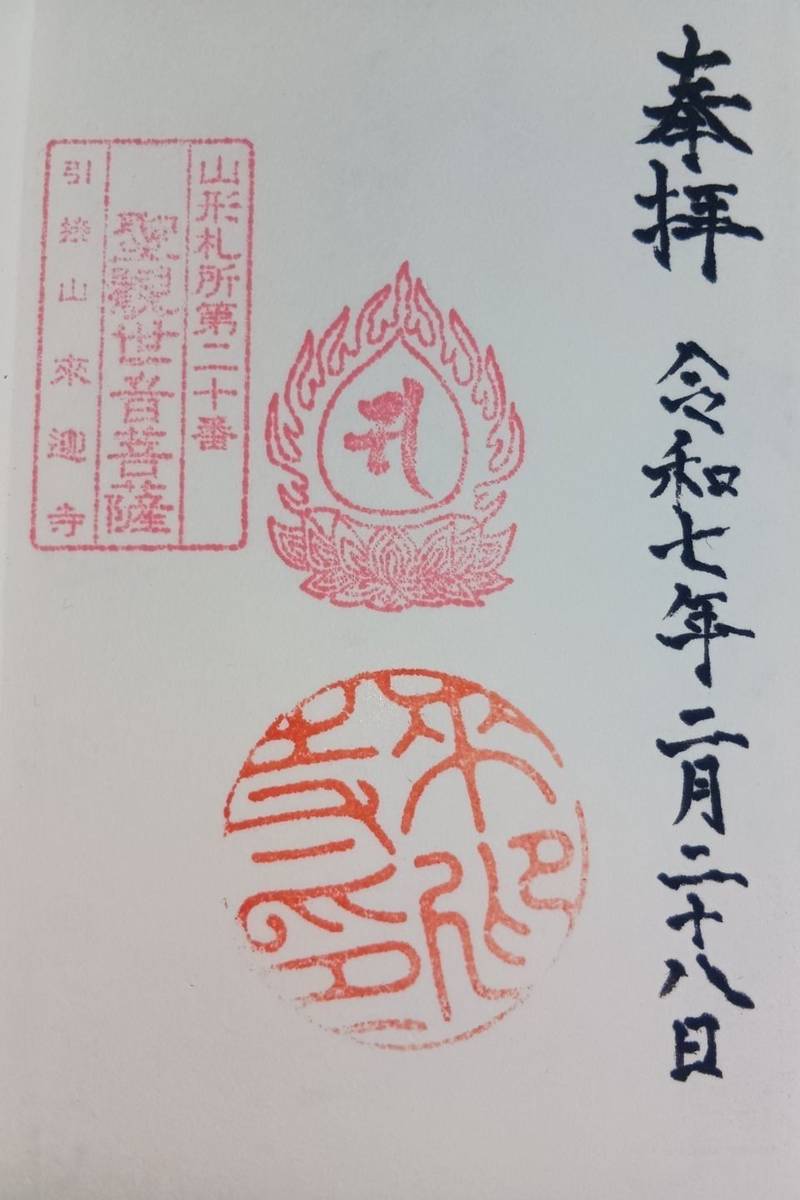 奉拝 令和七年二月二十八日
山形札所第二十番
聖観世音菩薩
引接山來迎寺
サ
來迎寺印